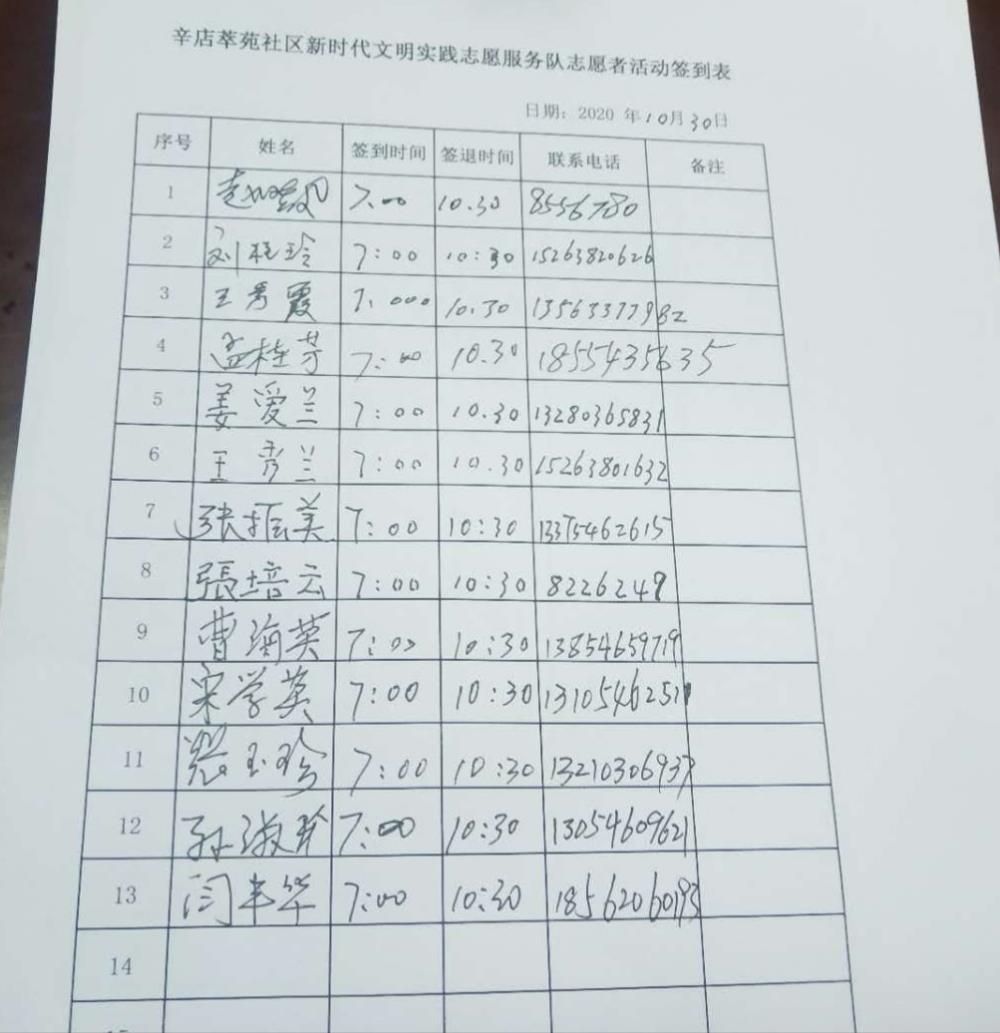 辛店萃苑社区新时代文明实践志愿服务队志愿者活动签到表
日期：2020 年10月30日
序号 姓名 签到时间 签退时间 联系电话 备注
1 7.00 10.30 8556780
2 刘桂玲 7:00 10:30 15263820626
3 王秀霞 7.000 10.30 13563377982
4 孟桂芳 7:00 10.30 18554355635
5 姜爱兰 7:00 10.30 13280365831
6 王秀兰 7:00 10.30 15263801632
7 张振美 7:00 10:30 13375462615
8 張培云 7:00 10:30 8226249
9 曹海英 7:00 10:30 13854659719
10 宋学英 7:00 10:30 13105462511
11 玉珍 7:00 10:30 13210306937
12 孙淑 7:00 10:30 13054609621
13 闫丰华 7:00 10:30 18562060193
14